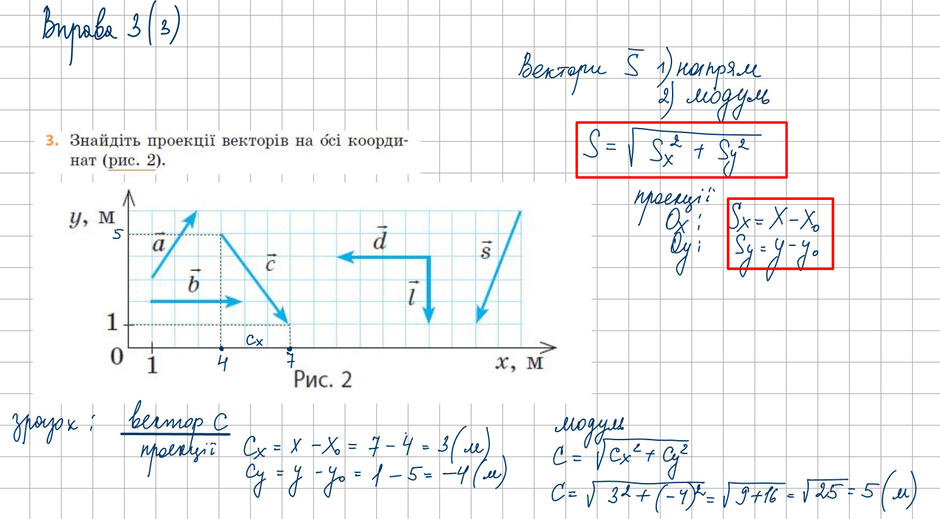 Вправа 3(3)
Вектори S̅ 1) напрям
2) модуль
S = √(Sx² + Sy²)
проекції
Ox: Sx = x – x₀
Oy: Sy = y – y₀
3. Знайдіть проекції векторів на о́сі коорди-
нат (рис. 2).
y, м
5
a⃗
b⃗
c⃗
d⃗
l⃗
s⃗
1
0 1 4 Cx 7 x, м
Рис. 2
зразок: вектор C
проекції Cx = x – x₀ = 7 – 4 = 3 (м)
Cy = y – y₀ = 1 – 5 = –4 (м)
модуль
C = √(Cx² + Cy²)
C = √(3² + (–4)²) = √(9+16) = √25 = 5 (м)